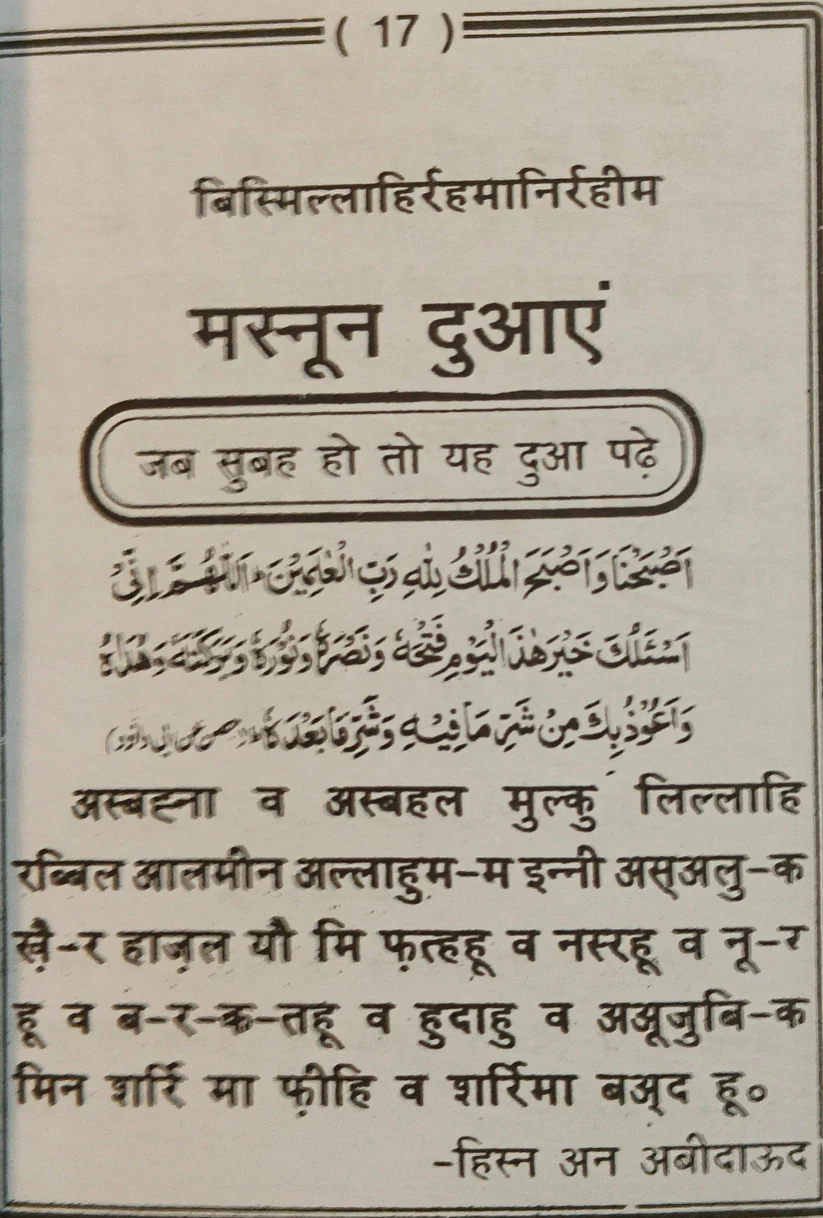 ( 17 )
बिस्मिल्लाहिर्रहमानिर्रहीम
मस्नून दुआएं
जब सुबह हो तो यह दुआ पढ़े
اَصْبَحْنَا وَاَصْبَحَ الْمُلْكُ لِلّٰهِ رَبِّ الْعٰلَمِيْنَ ، اَللّٰهُمَّ اِنِّیْ
اَسْئَلُكَ خَيْرَ هٰذَا الْيَوْمِ فَتْحَهٗ وَنَصْرَهٗ وَنُوْرَهٗ وَبَرَكَتَهٗ وَهُدَاهُ
وَاَعُوْذُ بِكَ مِنْ شَرِّ مَا فِيْهِ وَشَرِّ مَا بَعْدَهٗ
अस्बह्ना व अस्बहल मुल्कु लिल्लाहि
रब्बिल आलमीन अल्लाहुम-म इन्नी अस्अलु-क
ख़ै-र हाज़ल यौ मि फ़त्हहू व नस्रहू व नू-र
हू व ब-र-क-तहू व हुदाहु व अअूजुबि-क
मिन शर्रि मा फ़ीहि व शर्रिमा बअ्द हू०
-हिस्न अन अबीदाऊद